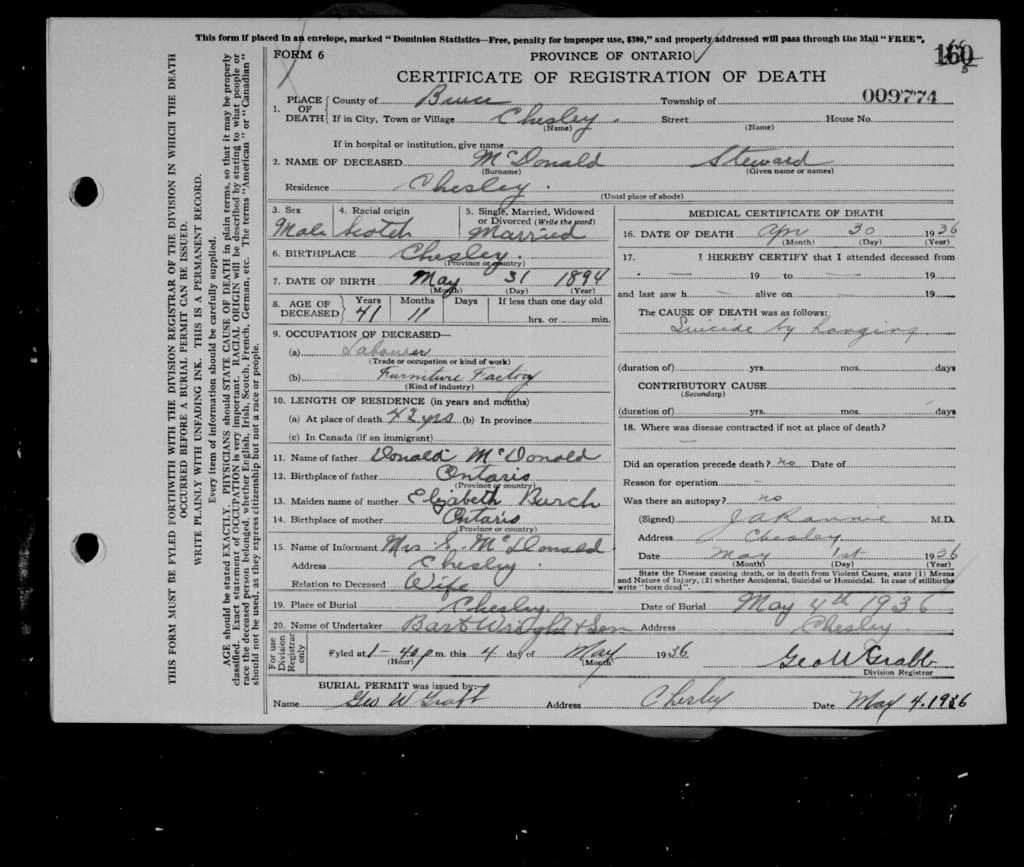 This form if placed in an envelope, marked "Dominion Statistics—Free, penalty for improper use, $300," and properly addressed will pass through the Mail "FREE".
FORM 6 PROVINCE OF ONTARIO
160
8
CERTIFICATE OF REGISTRATION OF DEATH
009774
1. PLACE OF DEATH { County of Bruce Township of
If in City, Town or Village Chesley. Street House No.
(Name) (Name)
If in hospital or institution, give name
2. NAME OF DECEASED McDonald Steward
(Surname) (Given name or names)
Residence Chesley.
(Usual place of abode)
3. Sex Male
4. Racial origin Scotch
5. Single, Married, Widowed or Divorced (Write the word) Married
6. BIRTHPLACE Chesley.
(Province or country)
7. DATE OF BIRTH May 31 1894
(Month) (Day) (Year)
8. AGE OF DECEASED } Years Months Days If less than one day old
41 11 hrs. or min.
9. OCCUPATION OF DECEASED—
(a) Labourer
(Trade or occupation or kind of work)
(b) Furniture Factory
(Kind of industry)
10. LENGTH OF RESIDENCE (in years and months)
(a) At place of death 42 yrs (b) In province
(c) In Canada (if an immigrant)
11. Name of father Donald McDonald
12. Birthplace of father Ontario
(Province or country)
13. Maiden name of mother Elizabeth Burch
14. Birthplace of mother Ontario
(Province or country)
15. Name of Informant Mrs. S. McDonald
Address Chesley.
Relation to Deceased Wife
MEDICAL CERTIFICATE OF DEATH
16. DATE OF DEATH Apr 30 1936
(Month) (Day) (Year)
17. I HEREBY CERTIFY that I attended deceased from
19 to 19
and last saw h alive on 19
The CAUSE OF DEATH was as follows:
Suicide by hanging
(duration of) yrs. mos. days
CONTRIBUTORY CAUSE
(Secondary)
(duration of) yrs. mos. days
18. Where was disease contracted if not at place of death?
Did an operation precede death? no Date of
Reason for operation
Was there an autopsy? no
(Signed) M.D.
Address Chesley
Date May 1st 1936
(Month) (Day) (Year)
State the Disease causing death, or in death from Violent Causes, state (1) Means and Nature of Injury, (2) whether Accidental, Suicidal or Homicidal. In case of stillbirths write "born dead".
19. Place of Burial Chesley. Date of Burial May 4th 1936
20. Name of Undertaker Bart Wright & Son Address Chesley
For use Division Registrar only
Fyled at 1-40 p. m. this 4 day of May 1936 Geo W Grabb
(Hour) (Month) Division Registrar
BURIAL PERMIT was issued by:—
Name Geo W Grabb Address Chesley Date May 4. 1936
THIS FORM MUST BE FYLED FORTHWITH WITH THE DIVISION REGISTRAR OF THE DIVISION IN WHICH THE DEATH
OCCURRED BEFORE A BURIAL PERMIT CAN BE ISSUED.
WRITE PLAINLY WITH UNFADING INK. THIS IS A PERMANENT RECORD.
Every item of information should be carefully supplied.
AGE should be stated EXACTLY. PHYSICIANS should STATE CAUSE OF DEATH in plain terms, so that it may be properly
classified. Exact statement of OCCUPATION is very important. RACIAL ORIGIN will be described by stating to what people or
race the deceased person belonged, whether English, Irish, Scotch, French, German, etc. The terms "American" or "Canadian"
should not be used, as they express citizenship but not a race or people.